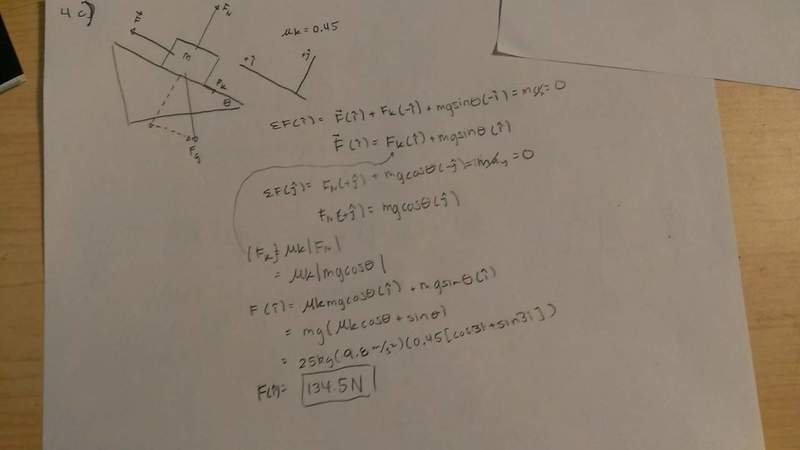 4 c)
F⃗
F_N
m
F_k
θ
F_g
μk = 0.45
+î
+ĵ
ΣF(î) = F⃗(î) + Fk(-î) + mgsinθ(-î) = max = 0
F⃗(î) = Fk(î) + mgsinθ(î)
ΣF(ĵ) = FN(+ĵ) + mgcosθ(-ĵ) = may = 0
FN(+ĵ) = mgcosθ(ĵ)
|Fk| = μk|FN|
= μk|mgcosθ|
F(î) = μkmgcosθ(î) + mgsinθ(î)
= mg(μkcosθ + sinθ)
= 25kg(9.8 m/s²)(0.45[cos31+sin31])
F(î) = 134.5N